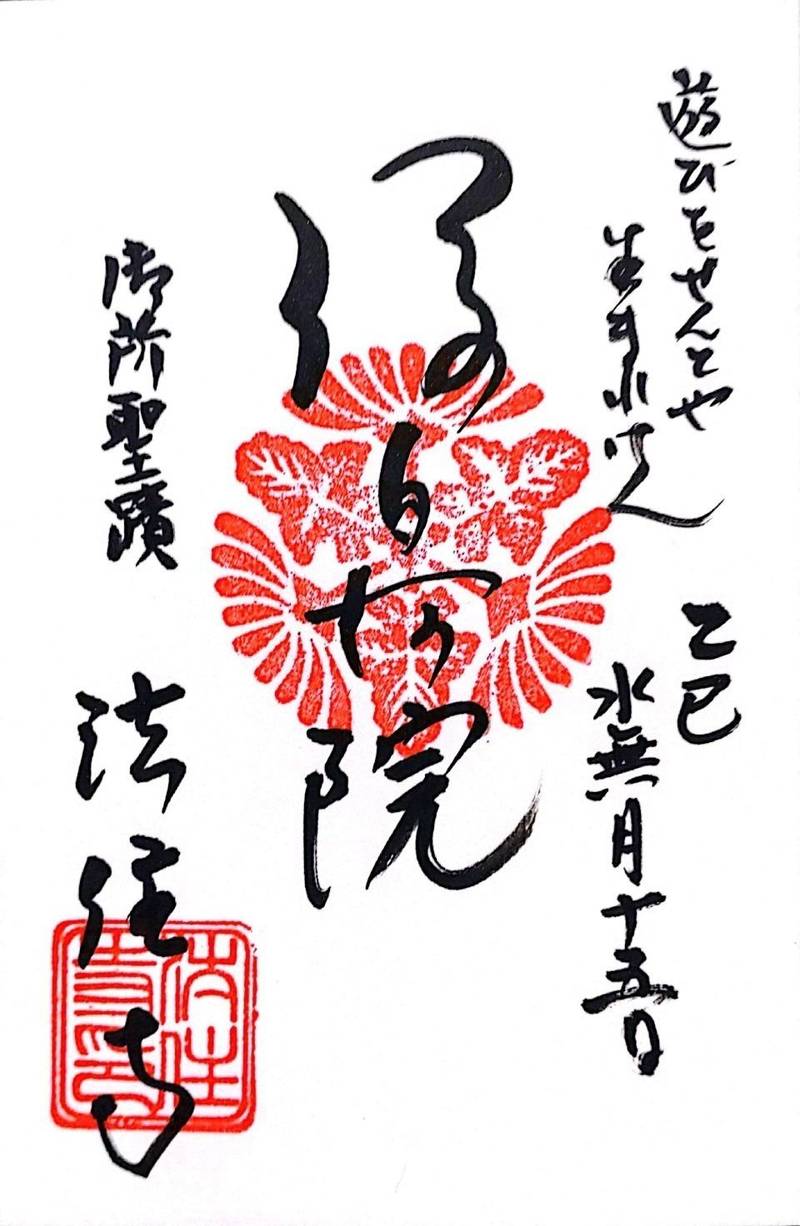 遊びをせんとや
生まれけん
乙巳
水無月十五日
後白河院
御所聖蹟
法住寺
法住寺印